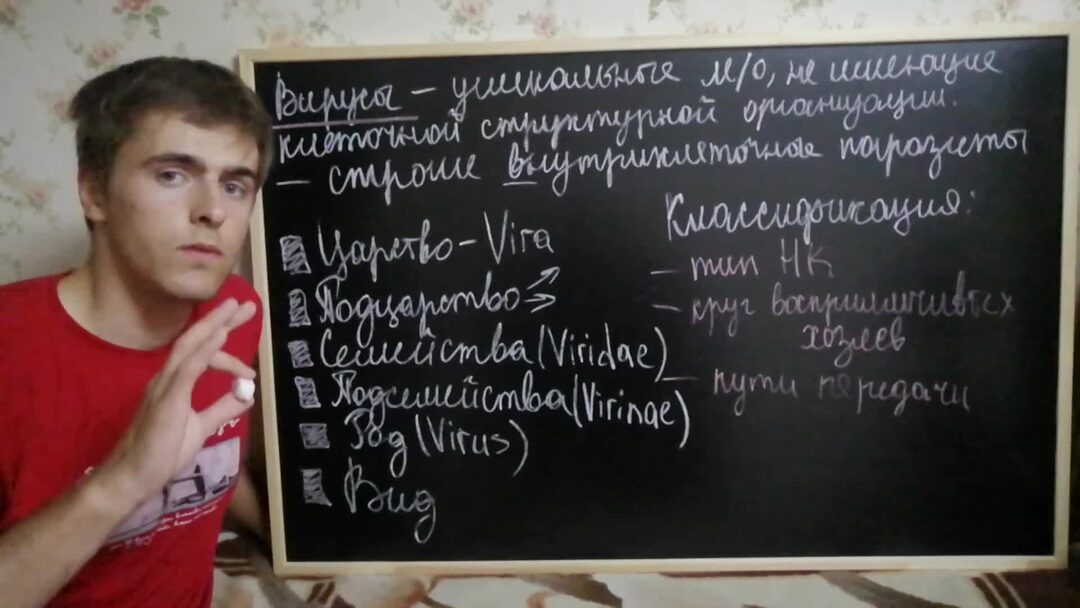 Вирусы – уникальные м/о, не имеющие
клеточной структурной организации.
– строгие внутриклеточные паразиты
Царство – Vira
Подцарство
Семейства (Viridae)
Подсемейства (Virinae)
Род (Virus)
Вид
Классификация:
– тип НК
– круг восприимчивых
хозяев
– пути передачи